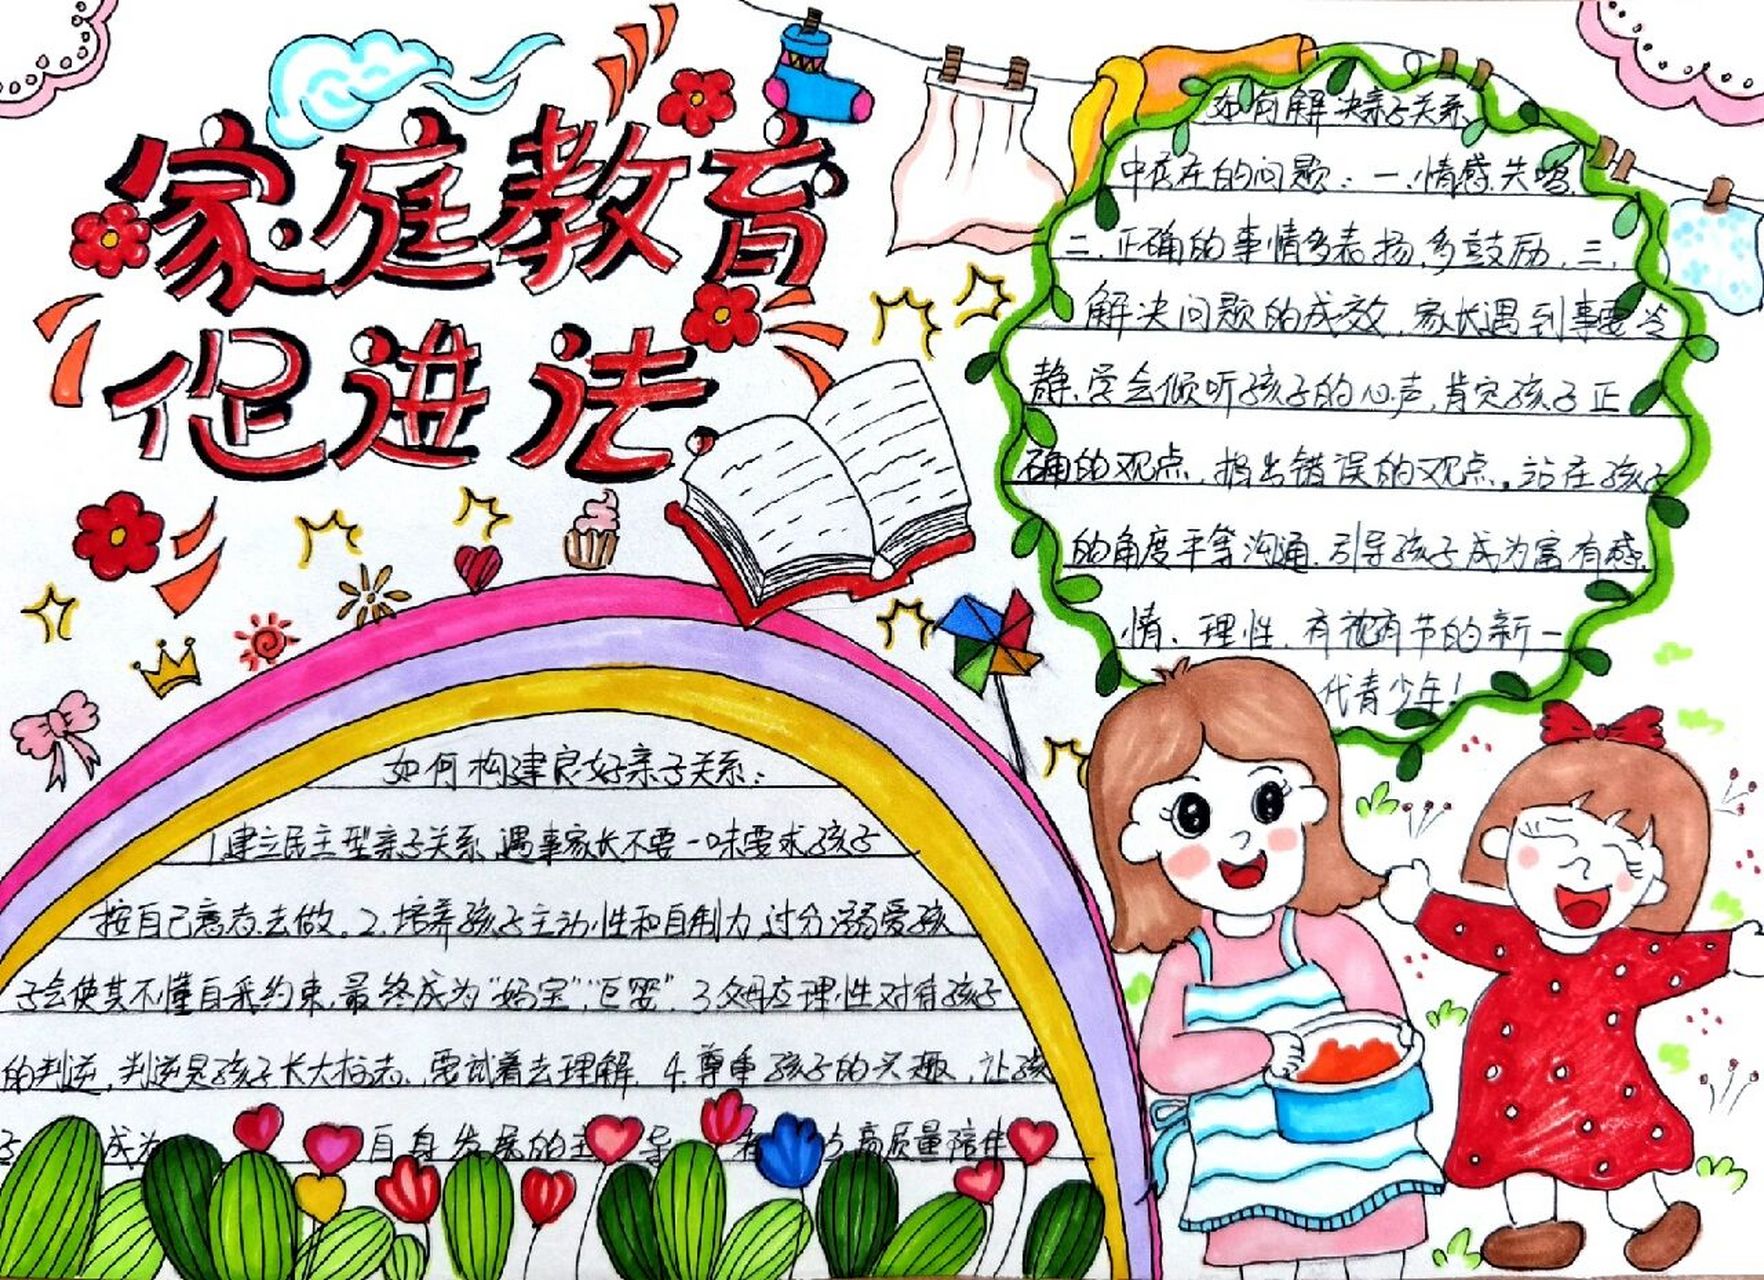 家庭教育
促进法
如何解决亲子关系
中存在的问题：一.情感共鸣.
二.正确的事情多表扬,多鼓励.三.
解决问题的成效,家长遇到事要冷
静.学会倾听孩子的心声,肯定孩子正
确的观点,指出错误的观点。站在孩子
的角度平等沟通.引导孩子成为富有感
情、理性.有视有节的新一
代青少年!
如何构建良好亲子关系：
1.建立民主型亲子关系,遇事家长不要一味要求孩子
按自己意志去做。2.培养孩子主动性和自制力,过分溺爱孩
子会使其不懂自我约束,最终成为“妈宝”,“巨婴”.3.父母应理性对待孩子
的判逆,判逆是孩子长大标志.,要试着去理解.4.尊重孩子的兴趣,让孩
子 成为 自身发展的主导 者 高质量陪伴